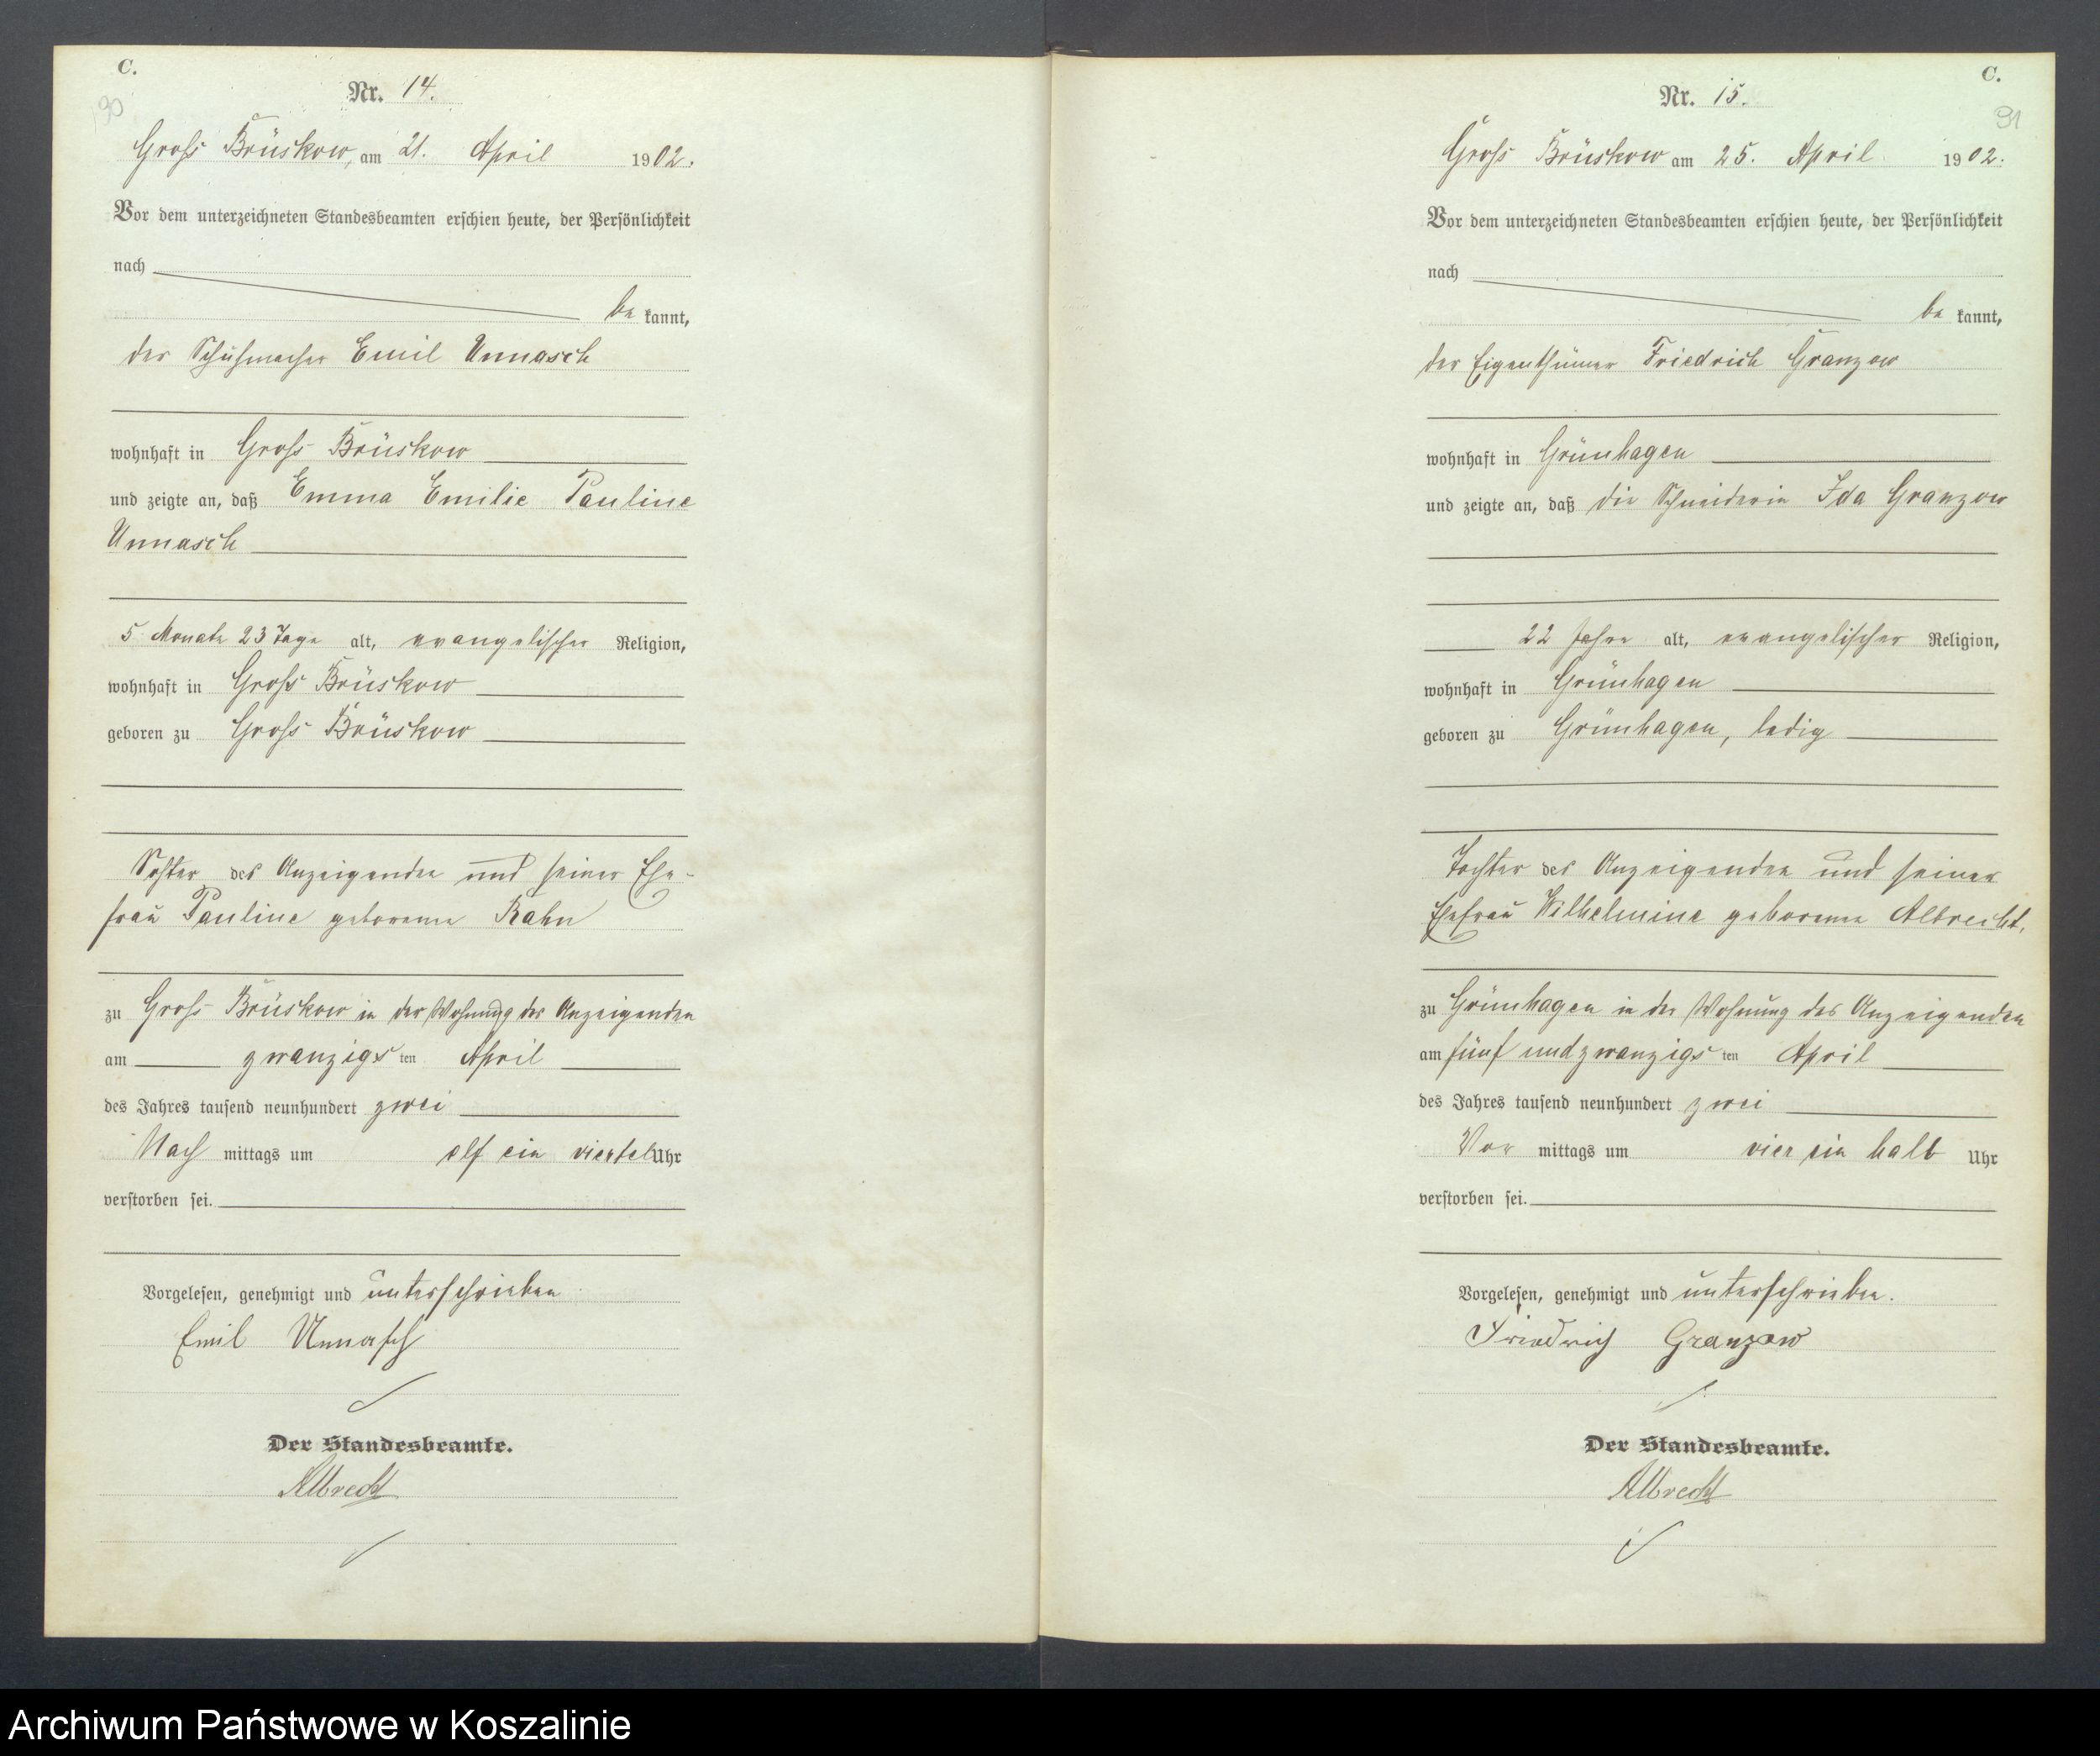 C.
90
Nr. 14.
Gross Brüskow, am 21. April 1902.
Vor dem unterzeichneten Standesbeamten erschien heute, der Persönlichkeit
nach
be kannt,
der Schuhmacher Emil Unnasch
wohnhaft in Gross Brüskow
und zeigte an, daß Emma Emilie Pauline
Unnasch
5 Monate 23 Tage alt, evangelischer Religion,
wohnhaft in Gross Brüskow
geboren zu Gross Brüskow
des Anzeigenden und seiner Ehe-
frau Pauline geborene
zu Gross Brüskow in der Wohnung des Anzeigenden
am zwanzigsten April
des Jahres tausend neunhundert zwei
Nach mittags um elf ein viertel Uhr
verstorben sei.
Vorgelesen, genehmigt und unterschrieben
Emil Unnasch
Der Standesbeamte.
Albrecht
C.
91
Nr. 15.
Gross Brüskow am 25. April 1902.
Vor dem unterzeichneten Standesbeamten erschien heute, der Persönlichkeit
nach
be kannt,
der Eigenthümer Friedrich Granzow
wohnhaft in Grünhagen
und zeigte an, daß die Schneiderin Ida Granzow
22 Jahre alt, evangelischer Religion,
wohnhaft in Grünhagen
geboren zu Grünhagen, ledig
Tochter des Anzeigenden und seiner
Ehefrau Wilhelmine geborene Albrecht,
zu Grünhagen in der Wohnung des Anzeigenden
am fünf und zwanzigsten April
des Jahres tausend neunhundert zwei
Vor mittags um vier ein halb Uhr
verstorben sei.
Vorgelesen, genehmigt und unterschrieben.
Friedrich Granzow
Der Standesbeamte.
Albrecht
Archiwum Państwowe w Koszalinie